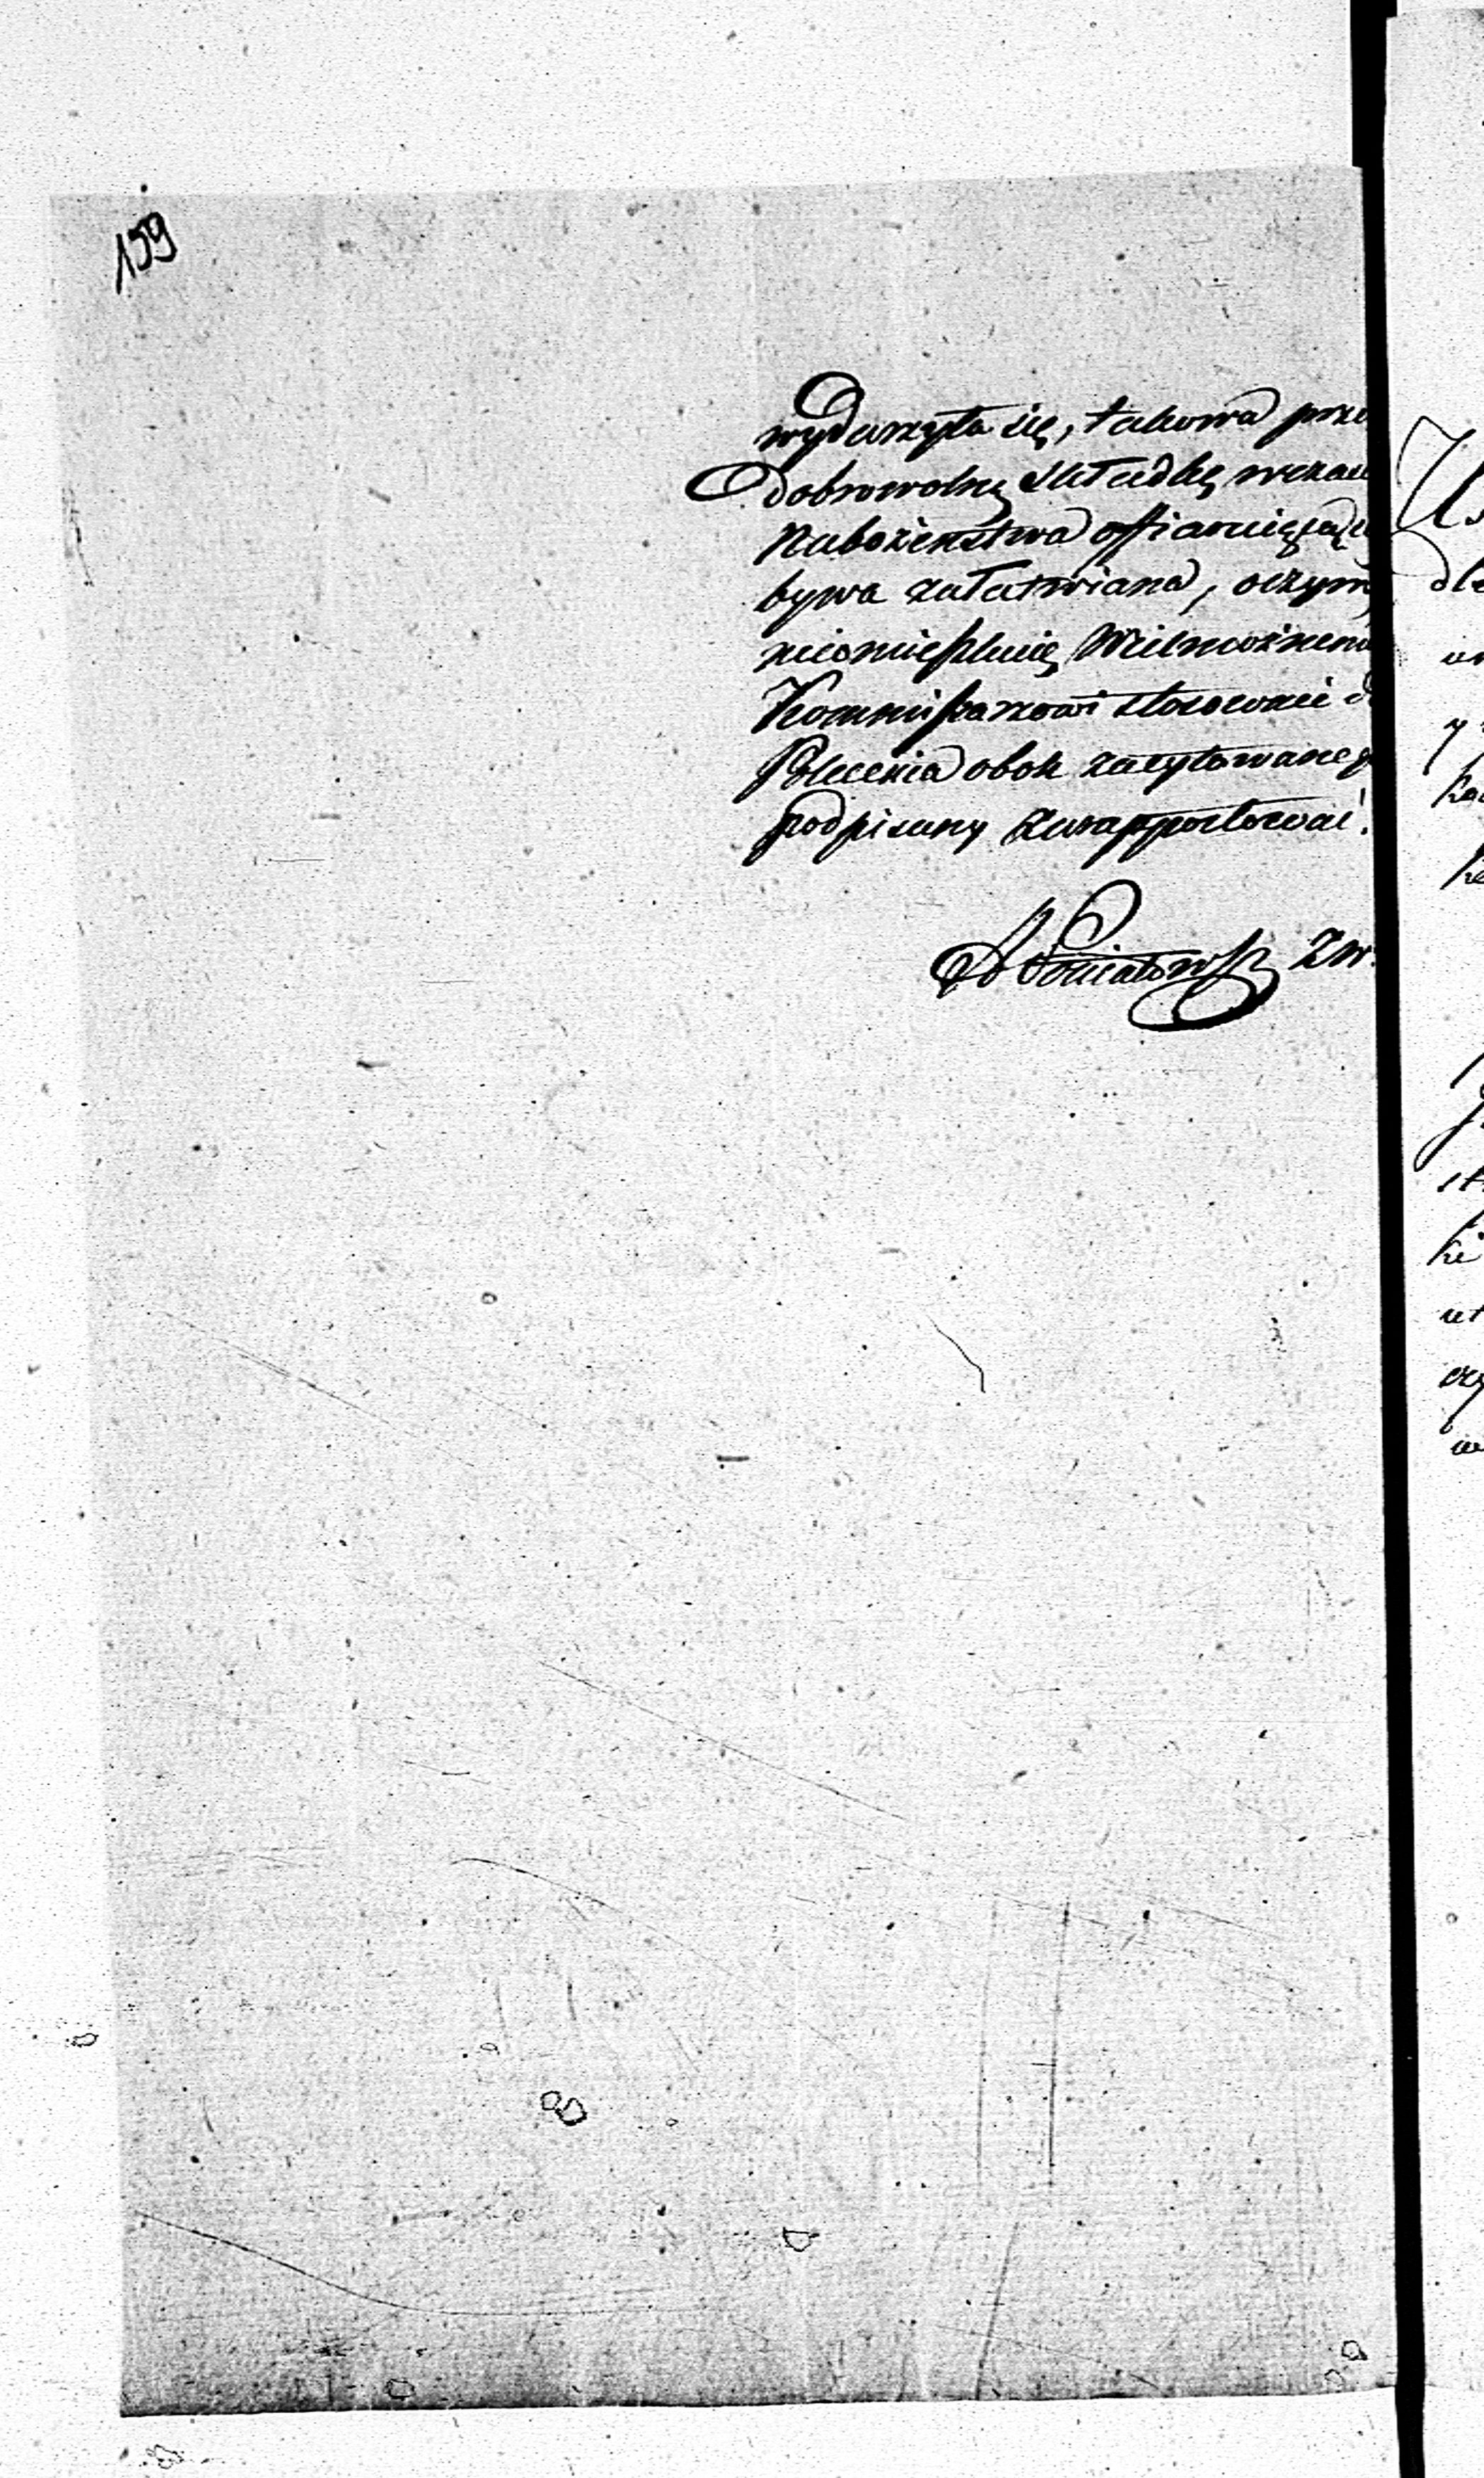 159
wydarzyła się, takowa prze
dobrowolną składkę wczasie
Nabożeństwa offiarującą
bywa załatwiana, oczym
nieomieszkuię Wielmożnemu
Kommissarzowi stosownie d
Polecenia obok zacytowaneg
podpisany zarapportować.
A Poniatowski Zw.